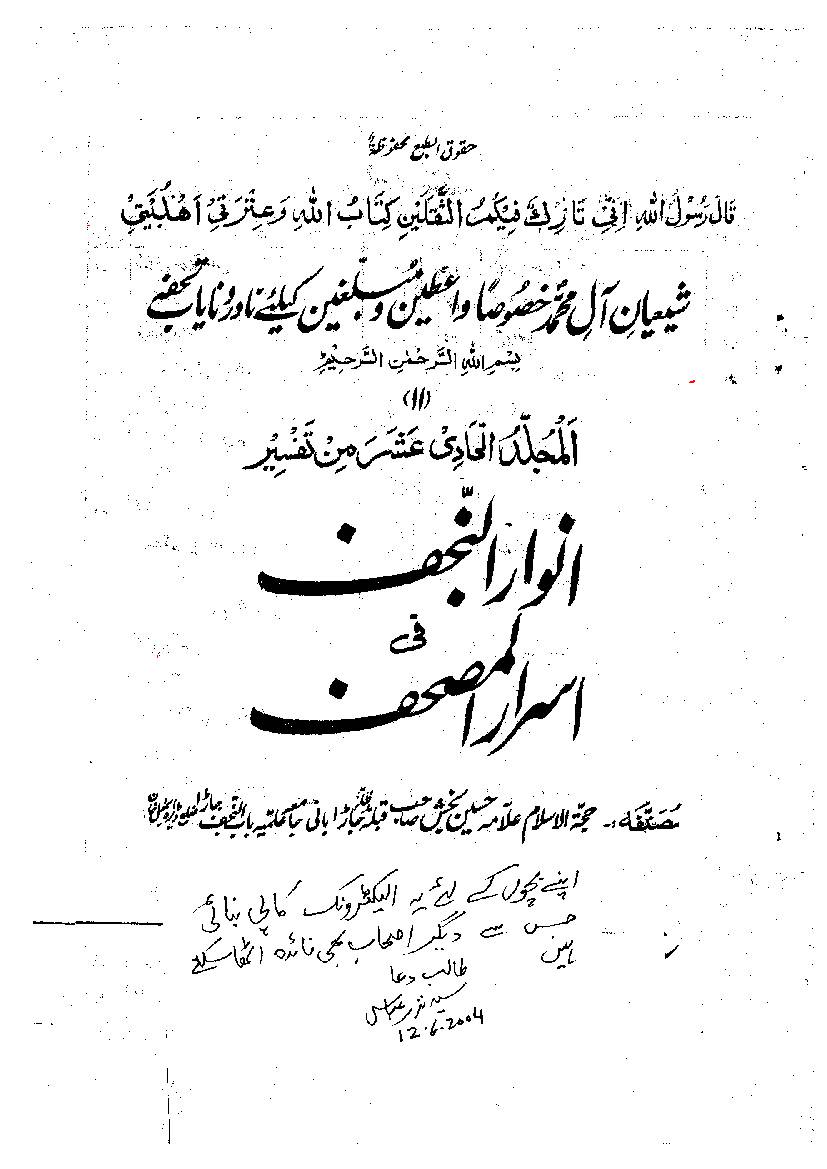 حقوق الطبع محفوظة
قَالَ رَسُوْلُ اللهِ اِنِّیْ تَارِكٌ فِیْكُمُ الثَّقَلَیْنِ كِتَابَ اللهِ وَعِتْرَتِیْ اَهْلَبَیْتِیْ
شیعیانِ آلِ محمدؐ خصوصًا واعظین و مبلّغین کیلئے نادر و نایاب تحفے
بِسْمِ اللهِ الرَّحْمٰنِ الرَّحِیْمِ
(۱۱)
اَلْمُجَلَّدُ الْحَادِیْ عَشَرَ مِنْ تَفْسِیْرِ
انوار النّجف
فی
اسرار المصحف
مُصَنِّفَہ:۔ حجۃ الاسلام علّامہ حسین بخش صاحب قبلہ جاڑا بانی جامعہ علمیہ باب النجف جاڑا
اپنے بچوں کے لئے یہ الیکٹرونک کاپی بنائی
جس سے دیگر اصحاب بھی فائدہ اٹھا سکتے
ہیں
طالب دعا
سید نذر عباس
12.6.2004